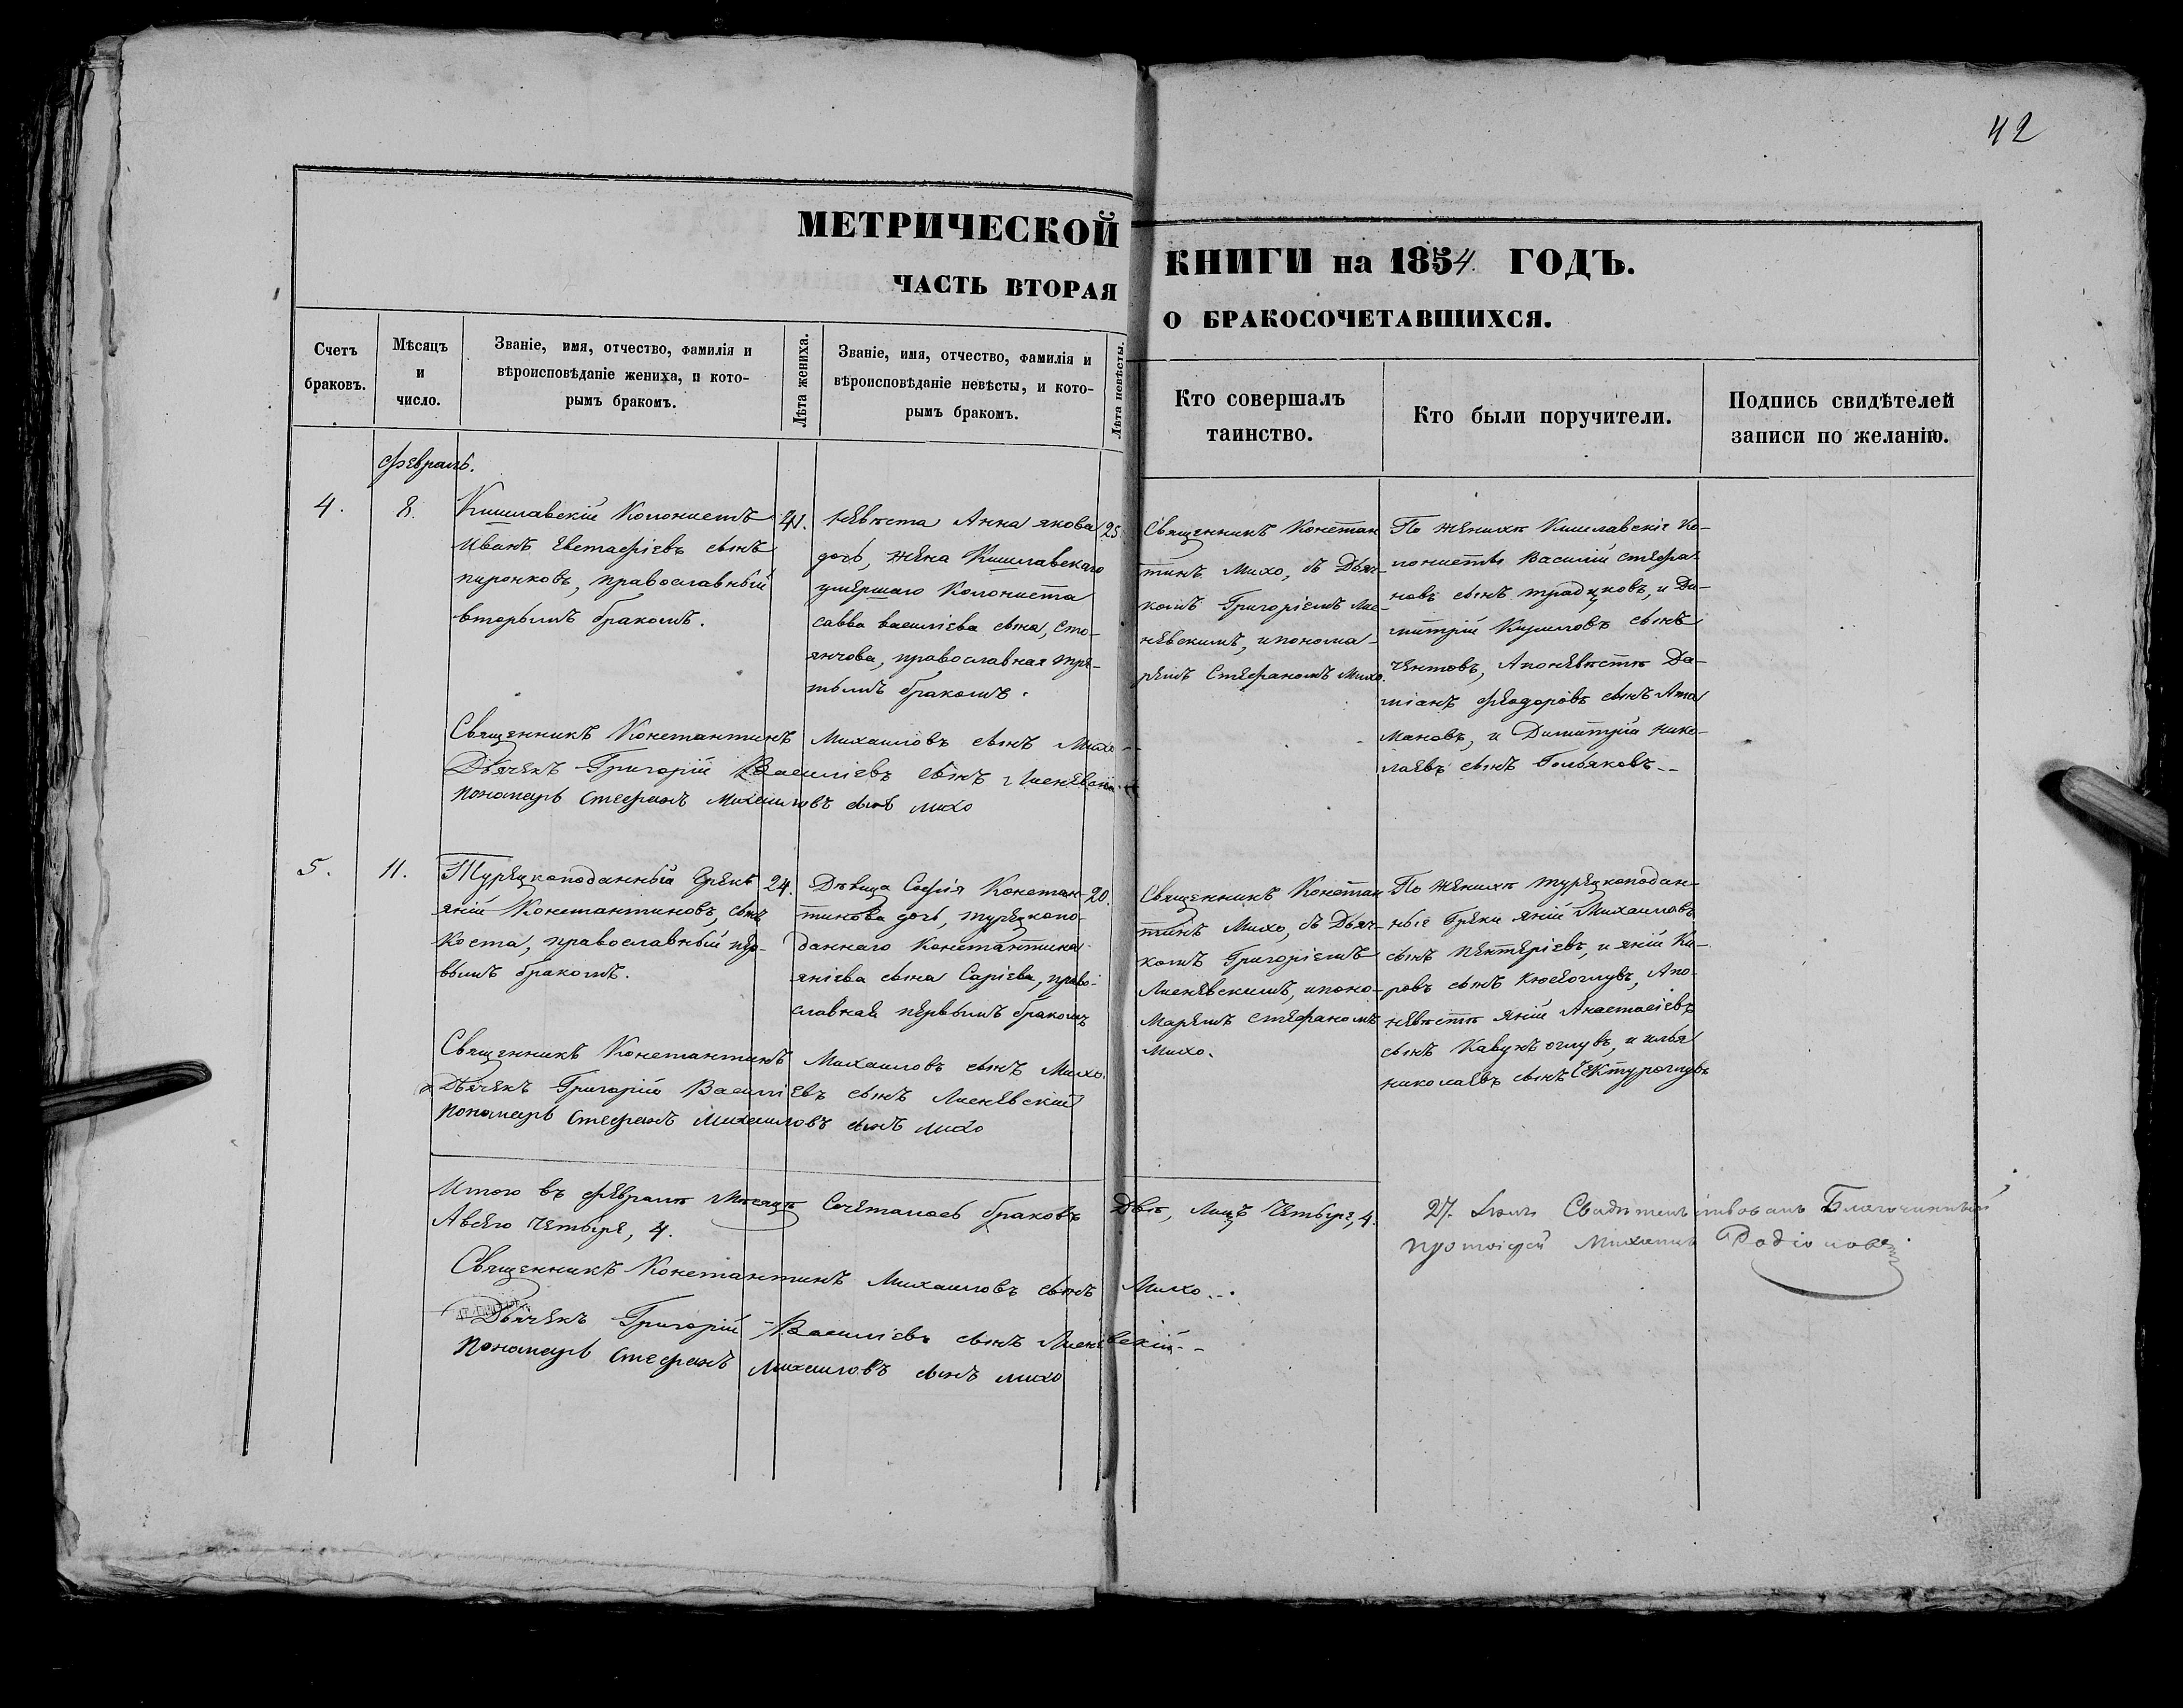 42
МЕТРИЧЕСКОЙ КНИГИ на 1854. ГОДЪ.
ЧАСТЬ ВТОРАЯ О БРАКОСОЧЕТАВШИХСЯ.
Счетъ
браковъ.
Мѣсяцъ
и
число.
Званіе, имя, отчество, фамилія и
вѣроисповѣданіе жениха, и кото-
рымъ бракомъ.
Лѣта жениха.
Званіе, имя, отчество, фамилія и
вѣроисповѣданіе невѣсты, и кото-
рымъ бракомъ.
Лѣта невѣсты.
Кто совершалъ
таинство.
Кто были поручители.
Подпись свидѣтелей
записи по желанію.
Февраль.
4.
8.
Кишлавскій Колонистъ
Иванъ Евстафіевъ сынъ
пиронковъ, православный
вторымъ бракомъ.
41.
невѣста Анна якова
дочь, жена Кишлавскаго
умершаго Колониста
савва василіева сына, Сто-
янчова, православная тре-
тьимъ бракомъ.
25.
Священникъ Констан
тинъ Михо, съ Дьяч-
комъ Григоріемъ Лис-
невскимъ, и понома-
ремъ Стефаномъ Михо.
По женихѣ Кишлавскіе Ко-
лонисты Василій стефа-
новъ сынъ традцковъ, и Ди-
митрій Кириловъ сынъ
чентовъ, А по невѣстѣ Да-
міанъ феодоровъ сынъ Ата
мановъ, и Димитрій нико-
лаевъ сынъ Гольяковъ--
Священникъ Константинъ Михаиловъ сынъ Михо--
Дьячекъ Григорій Василіевъ сынъ Лисневскій
пономарь Стефанъ Михаиловъ сынъ михо
5.
11.
Турецкоподанный Грекъ
яній Константиновъ, сынъ
Коста, православный пер-
вымъ бракомъ.
24.
Дѣвица Софія Констан-
тинова дочь, турецкопо-
даннаго Константина
яніева сына Саріева, право-
славная первымъ бракомъ
20.
Священникъ Констан
тинъ Михо, съ Дьяч-
комъ Григоріемъ
Лисневскимъ, и поно-
маремъ стефаномъ
Михо.
По женихѣ турецкоподан-
ные Греки яній Михаиловъ
сынъ пентеріевъ, и яній Ки-
ровъ сынъ Кюсеоглувъ, А по
невѣстѣ яній Анастасіевъ
сынъ Кавунъ оглувъ, и илья
николаевъ сынъ
Священникъ Константинъ Михаиловъ сынъ Михо.
Дьячекъ Григорій Василіевъ сынъ Лисневскій
пономарь Стефанъ Михаиловъ сынъ михо
Итого въ февралѣ мѣсяцѣ Сочеталось браковъ Двѣ, Лицъ Четыре, 4.
А всего четыре, 4.
Священникъ Константинъ Михаиловъ сынъ Михо--.
Дьячекъ Григорій Василіевъ сынъ Лисневскій--
пономарь Стефанъ Михаиловъ сынъ михо
27. Свидѣтельствовалъ Благочинный
протоіерей Михаилъ Родіоновъ